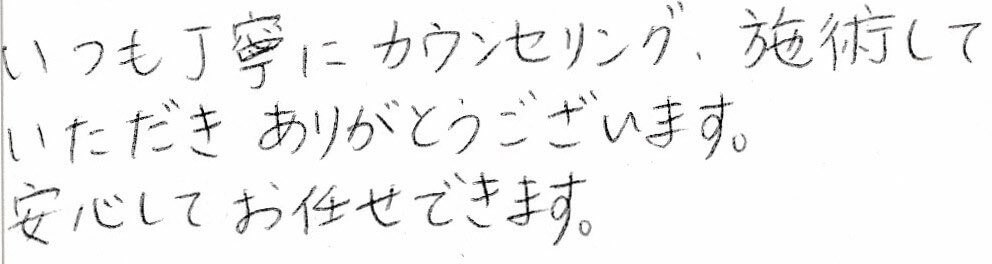 いつも丁寧にカウンセリング、施術して
いただきありがとうございます。
安心してお任せできます。